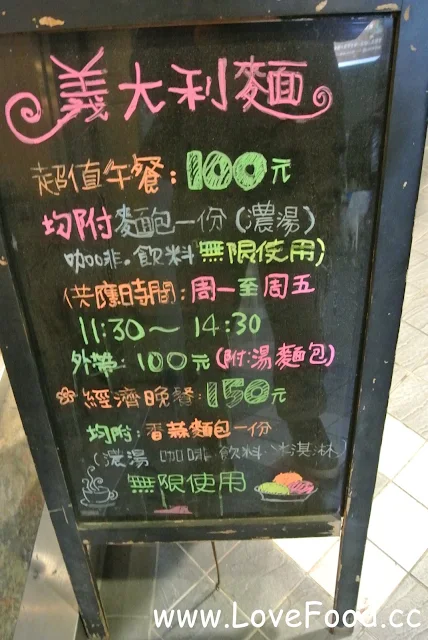 義大利麵
超值午餐：100元
均附麵包一份（濃湯）
咖啡。飲料 無限使用）
供應時間：周一至周五
11:30～14:30
外帶：100元（附：湯麵包）
經濟晚餐：150元
均附：香蒜麵包一份
（濃湯 咖啡 飲料 冰淇淋）
無限使用
www.LoveFood.cc